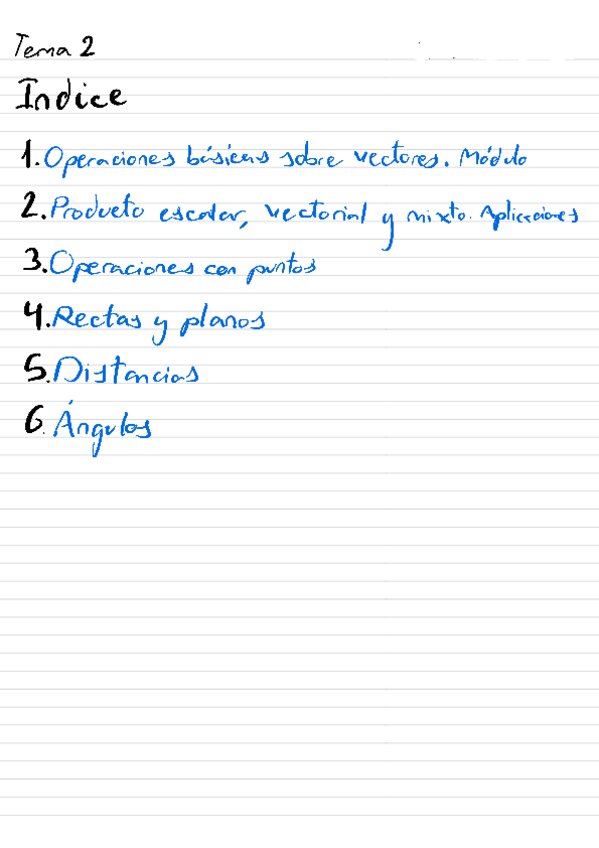 Tema 2
Indice
1. Operaciones básicas sobre vectores. Módulo
2. Producto escalar, vectorial y mixto. Aplicaciones
3. Operaciones con puntos
4. Rectas y planos
5. Distancias
6. Ángulos